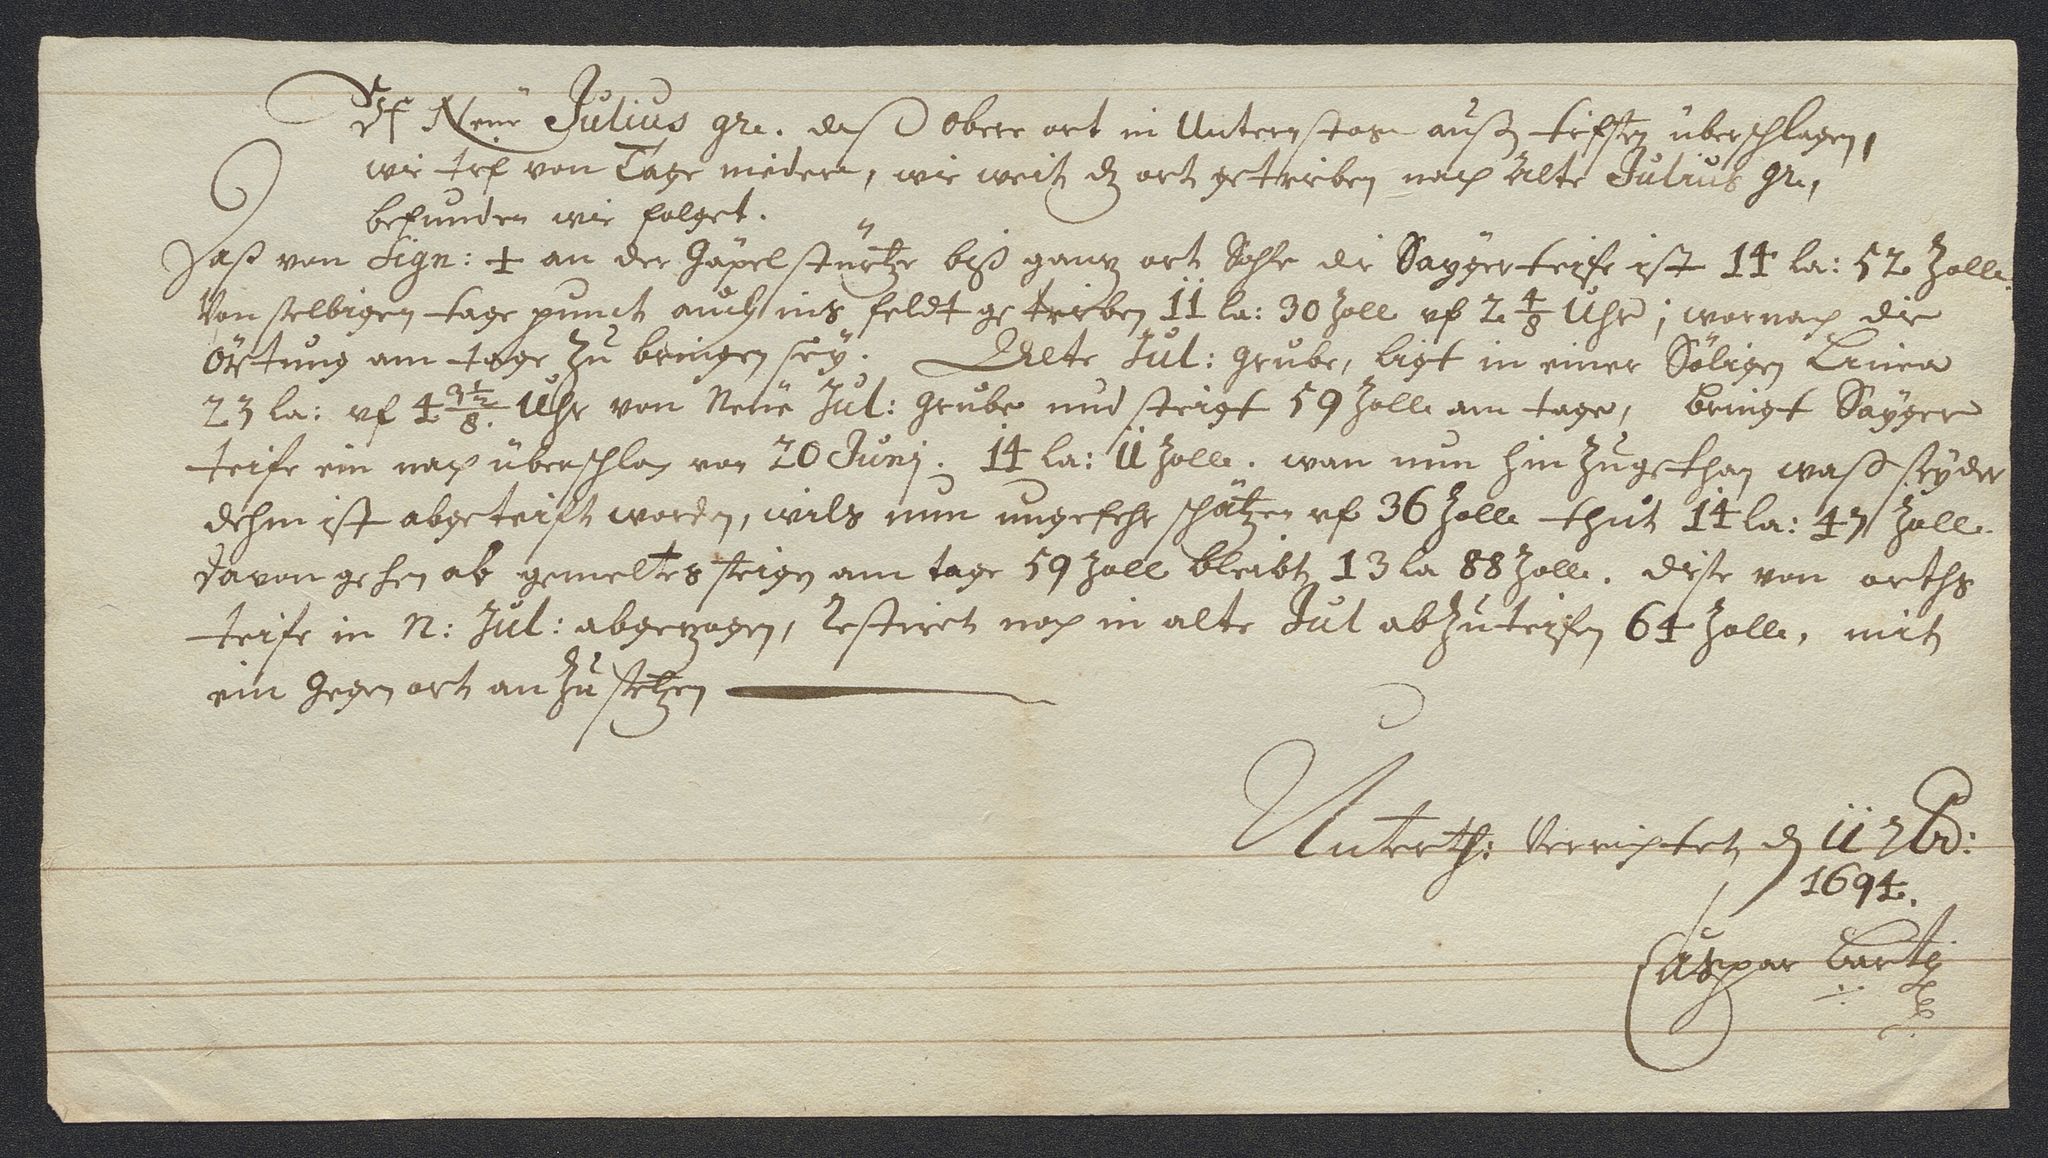 Vf Neüe Julius gru. daß Obere ort in Unterstose auß tifsten überschlagen,
wie teif von Tage nieder, wie weit dz ort getrieben nach Alte Julius gr.,
befunden wie folget.
Daß von Sign: + an der Gäpel stürtze biß gantz ort Sohle die Saygerteife ist 14 la: 52 Zolle.
Von selbigen tage punct auch ins feldt getrieben 11 la: 30 Zolle vf 2 4/8 Uhr; wornach die
Örtung am tage zu bringen sey. Alte Jul: Grube, ligt in einer Söligen Linea
23 la: vf 4 3½/8. Uhr von Neüe Jul: Grube und steigt 59 Zolle am tage, bringt Sayger
teife ein nach überschlag von 20 Junj. 14 la: 11 Zolle. wan nun hinzugethan waß seyder
dehm ist abgeteift worden, wils nun ungefehr schätzen vf 36 Zolle thut 14 la: 47 Zolle.
Davon gehen ab gemeltes steigen am tage 59 Zoll bleibt 13 la 88 Zolle. diese von orths
teife in N: Jul: abgezogen, Restiret noch in alte Jul abzuteifen 64 Zolle, mit
ein Gegen ort anzusetzen
Unterth: Verrichtet d 11 7br:
1694.
Caspar